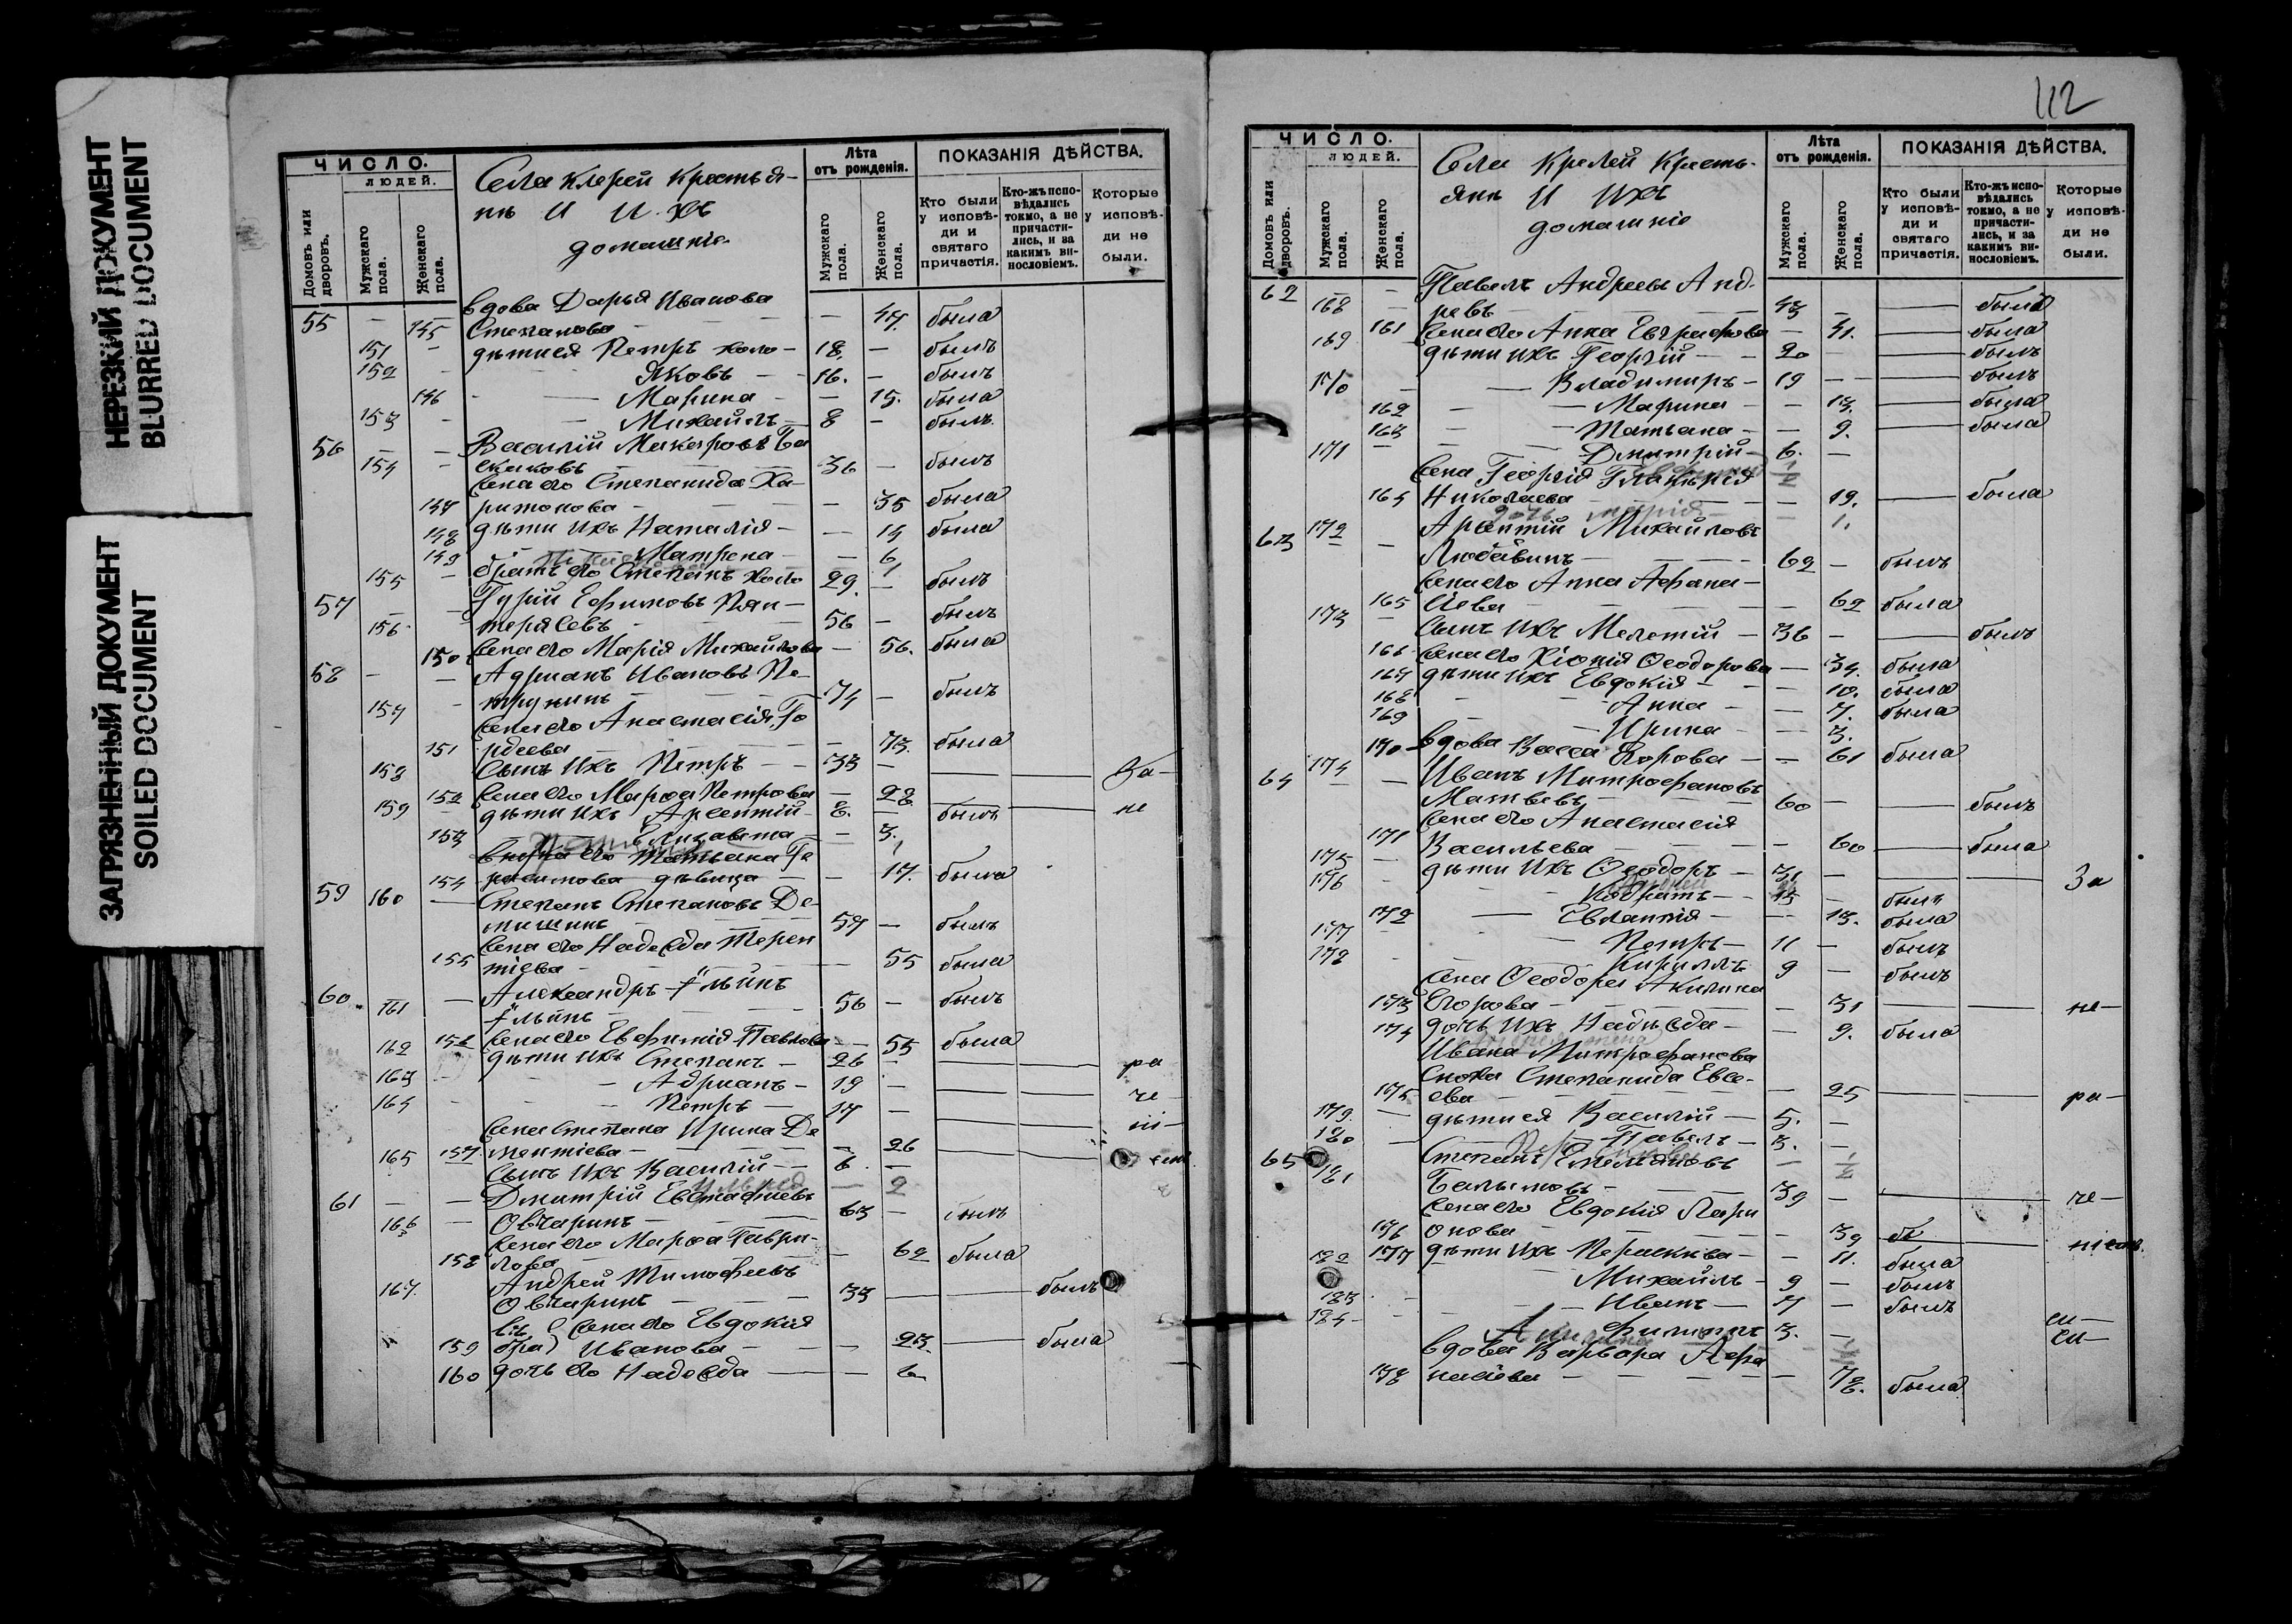 НЕРЕЗКИЙ ДОКУМЕНТ
BLURRED DOCUMENT
ЗАГРЯЗНЕННЫЙ ДОКУМЕНТ
SOILED DOCUMENT
ЧИСЛО.
ЛЮДЕЙ.
Домовъ или дворовъ.
Мужскаго пола.
Женскаго пола.
Села Клерей крестья-
нъ И И хъ
домашніе
Лѣта
отъ рожденія.
Мужскаго пола.
Женскаго пола.
ПОКАЗАНІЯ ДѢЙСТВА.
Кто были у исповѣди и святаго причастія.
Кто-жъ исповѣдались токмо, а не причастились, и за какимъ винословіемъ.
Которые у исповѣди не были.
вдова Дарья Иванова
55 145 Степанова 47. была
151 дѣти ея Петръ холо- 18. былъ
152 Яковъ 16. былъ
146 Марина 15. была
153 Михаилъ 8 былъ
56 Василій Макаровъ
154 36 былъ
жена его Степанида Ха-
147 ритонова 35 была
148 дѣти ихъ Наталія 14 была
149 Матрена 6
155 братъ его Степанъ холо 29. былъ
57 Гурій Ефимовъ Пан-
156 56 былъ
150 жена его Марія Михайлова 56. была
58 Адріанъ Ивановъ Пе-
157 трунинъ 74 былъ
жена его Анастасія Го
151 рдеева 73. была
158 сынъ ихъ Петръ 33 За-
152 жена его Марѳа Петрова 28 не
159 дѣти ихъ Арсентій 8. былъ
153 Елизавета 3.
внучка его Татьяна Ге
154 расимова дѣвица 17. была
59 160 Степанъ Степановъ Де
мишинъ 57 былъ
жена его Надежда Терен
155 тіева 55 была
60. Александръ Ильинъ
161 Ильинъ 56 былъ
156 жена его Евфимія Павлова 55 была
162 дѣти ихъ Степанъ 26 ра
163 Адріанъ 19 че
164 Петръ 17 ні-
жена Степана Ирина Де
157 ментіева 26 емъ
165 сынъ ихъ Василій 6
61 Дмитрій Евстафіевъ
166 Овчаринъ 63 былъ
жена его Марѳа Гаври-
158 лова 62 была
Андрей Тимофеевъ
167. Овчаринъ 33 былъ
жена его Евдокія
159 Иванова 23. была
160 дочь его Надежда 6
112
ЧИСЛО.
ЛЮДЕЙ.
Домовъ или дворовъ.
Мужскаго пола.
Женскаго пола.
Села Крелей Кресть-
янъ И Ихъ
домашніе
Лѣта
отъ рожденія.
Мужскаго пола.
Женскаго пола.
ПОКАЗАНІЯ ДѢЙСТВА.
Кто были у исповѣди и святаго причастія.
Кто-жъ исповѣдались токмо, а не причастились, и за какимъ винословіемъ.
Которые у исповѣди не были.
62 Павелъ Андреевъ Анд-
168 ревъ 43 былъ
161 жена его Анна Евграфова 41. была
169 дѣти ихъ Георгій 20 былъ
170 Владимиръ 19 былъ
162 Марина 13. была
163 Татьяна 9. была
171 Дмитрій 6.
жена Георгія
164 Николаева 19. была
дочь Марія 1.
63 172 Арсентій Михайловъ
Любавинъ 62 былъ
жена его Анна Афана-
165 сіева 62 была
173 сынъ ихъ Мелетій 36 былъ
166 жена его Хіонія Ѳеодорова 34. была
167 дѣти ихъ Евдокія 10. была
168 Анна 7. была
169 Ирина 3.
170 вдова Васса Егорова 61 была
64 174 Иванъ Митрофановъ
Матвѣевъ 60 былъ
жена его Анастасія
171 Васильева 60 была
175 дѣти ихъ Ѳеодоръ 31 За
176 Кодратъ 15 былъ
172 Евлампія 13. была
177 Петръ 11 былъ
178 Кириллъ 9 былъ
жена Ѳеодора Акилина
173 Егорова 31 не-
174 дочь ихъ Надежда 9. была
Ивана Митрофанова
сноха Степанида Евсе-
175 ева 25 ра-
179. дѣти ея Василій 5.
180 Павелъ 3.
65 Степанъ Емельяновъ
181 39 че-
жена его Евдокія Лари
176 онова 39
177 дѣти ихъ Параскева 11. была
182 Михаилъ 9 былъ
183 Иванъ 7 былъ
184 Филиппъ 3.
вдова Варвара Афа
178 насіева 78. была